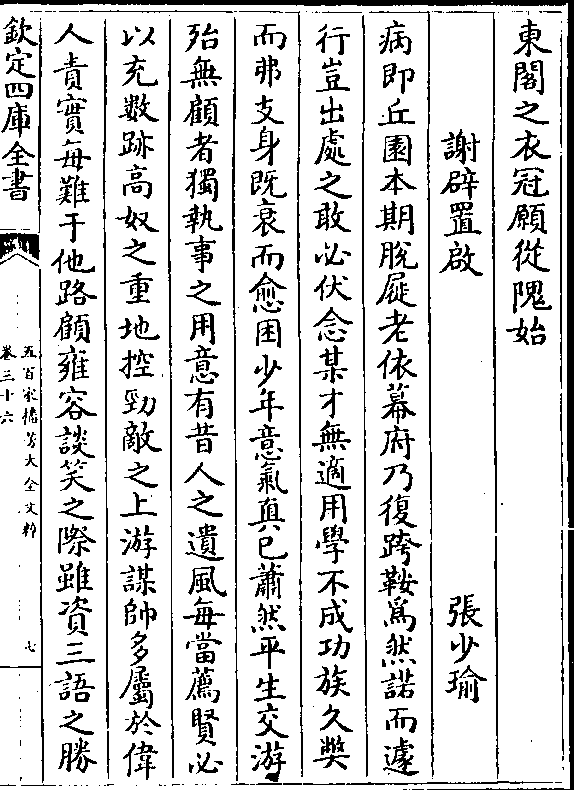 東閣之衣冠願從隗始
謝辟置啟　張少瑜
病即丘園本期脫屣老依幕府乃復跨鞍為然諾而遽
行豈出處之敢必伏念某才無適用學不成功族久獘
而弗支身既衰而愈困少年意氣真已蕭然平生交游
殆無顧者獨執事之用意有昔人之遺風每當薦賢必
以充數跡高奴之重地控勁敵之上游謀帥多屬於偉
人責實每難于他路顧雍容談笑之際雖資三語之勝
欽定四庫全書
五百家播芳大全文粹
卷三十六
七